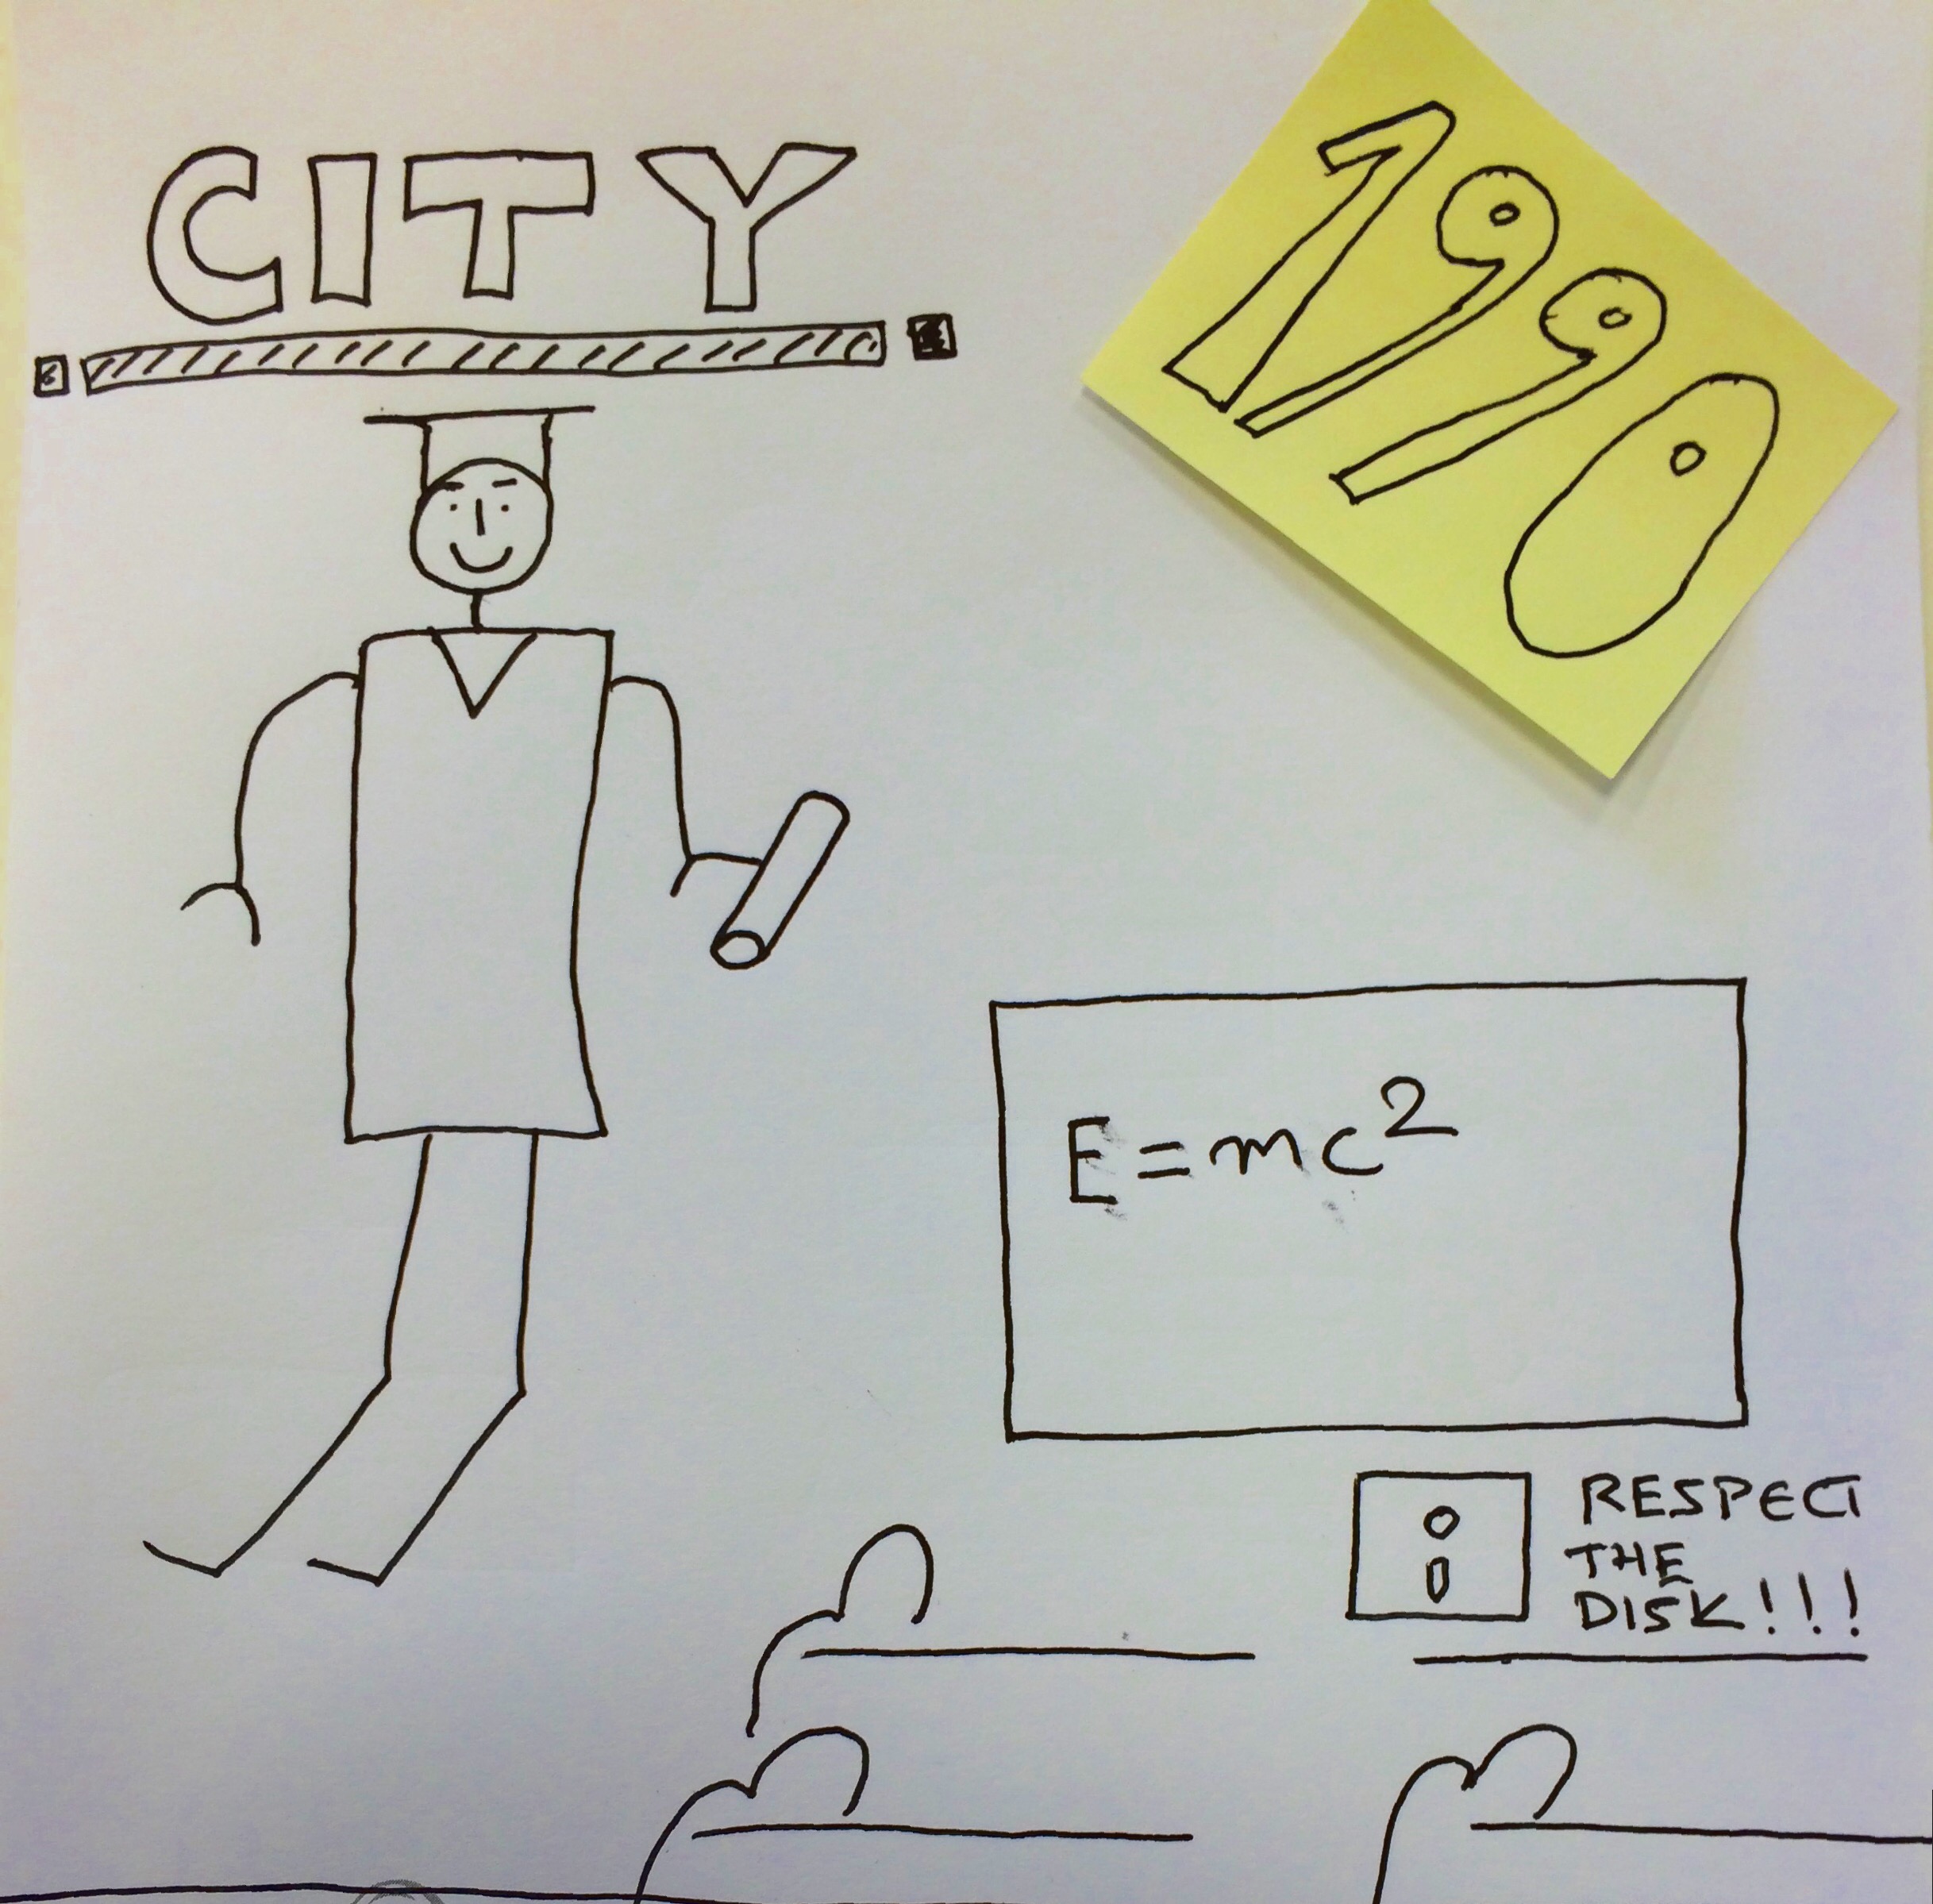 CITY
1990
E=mc²
RESPECT
THE
DISK!!!